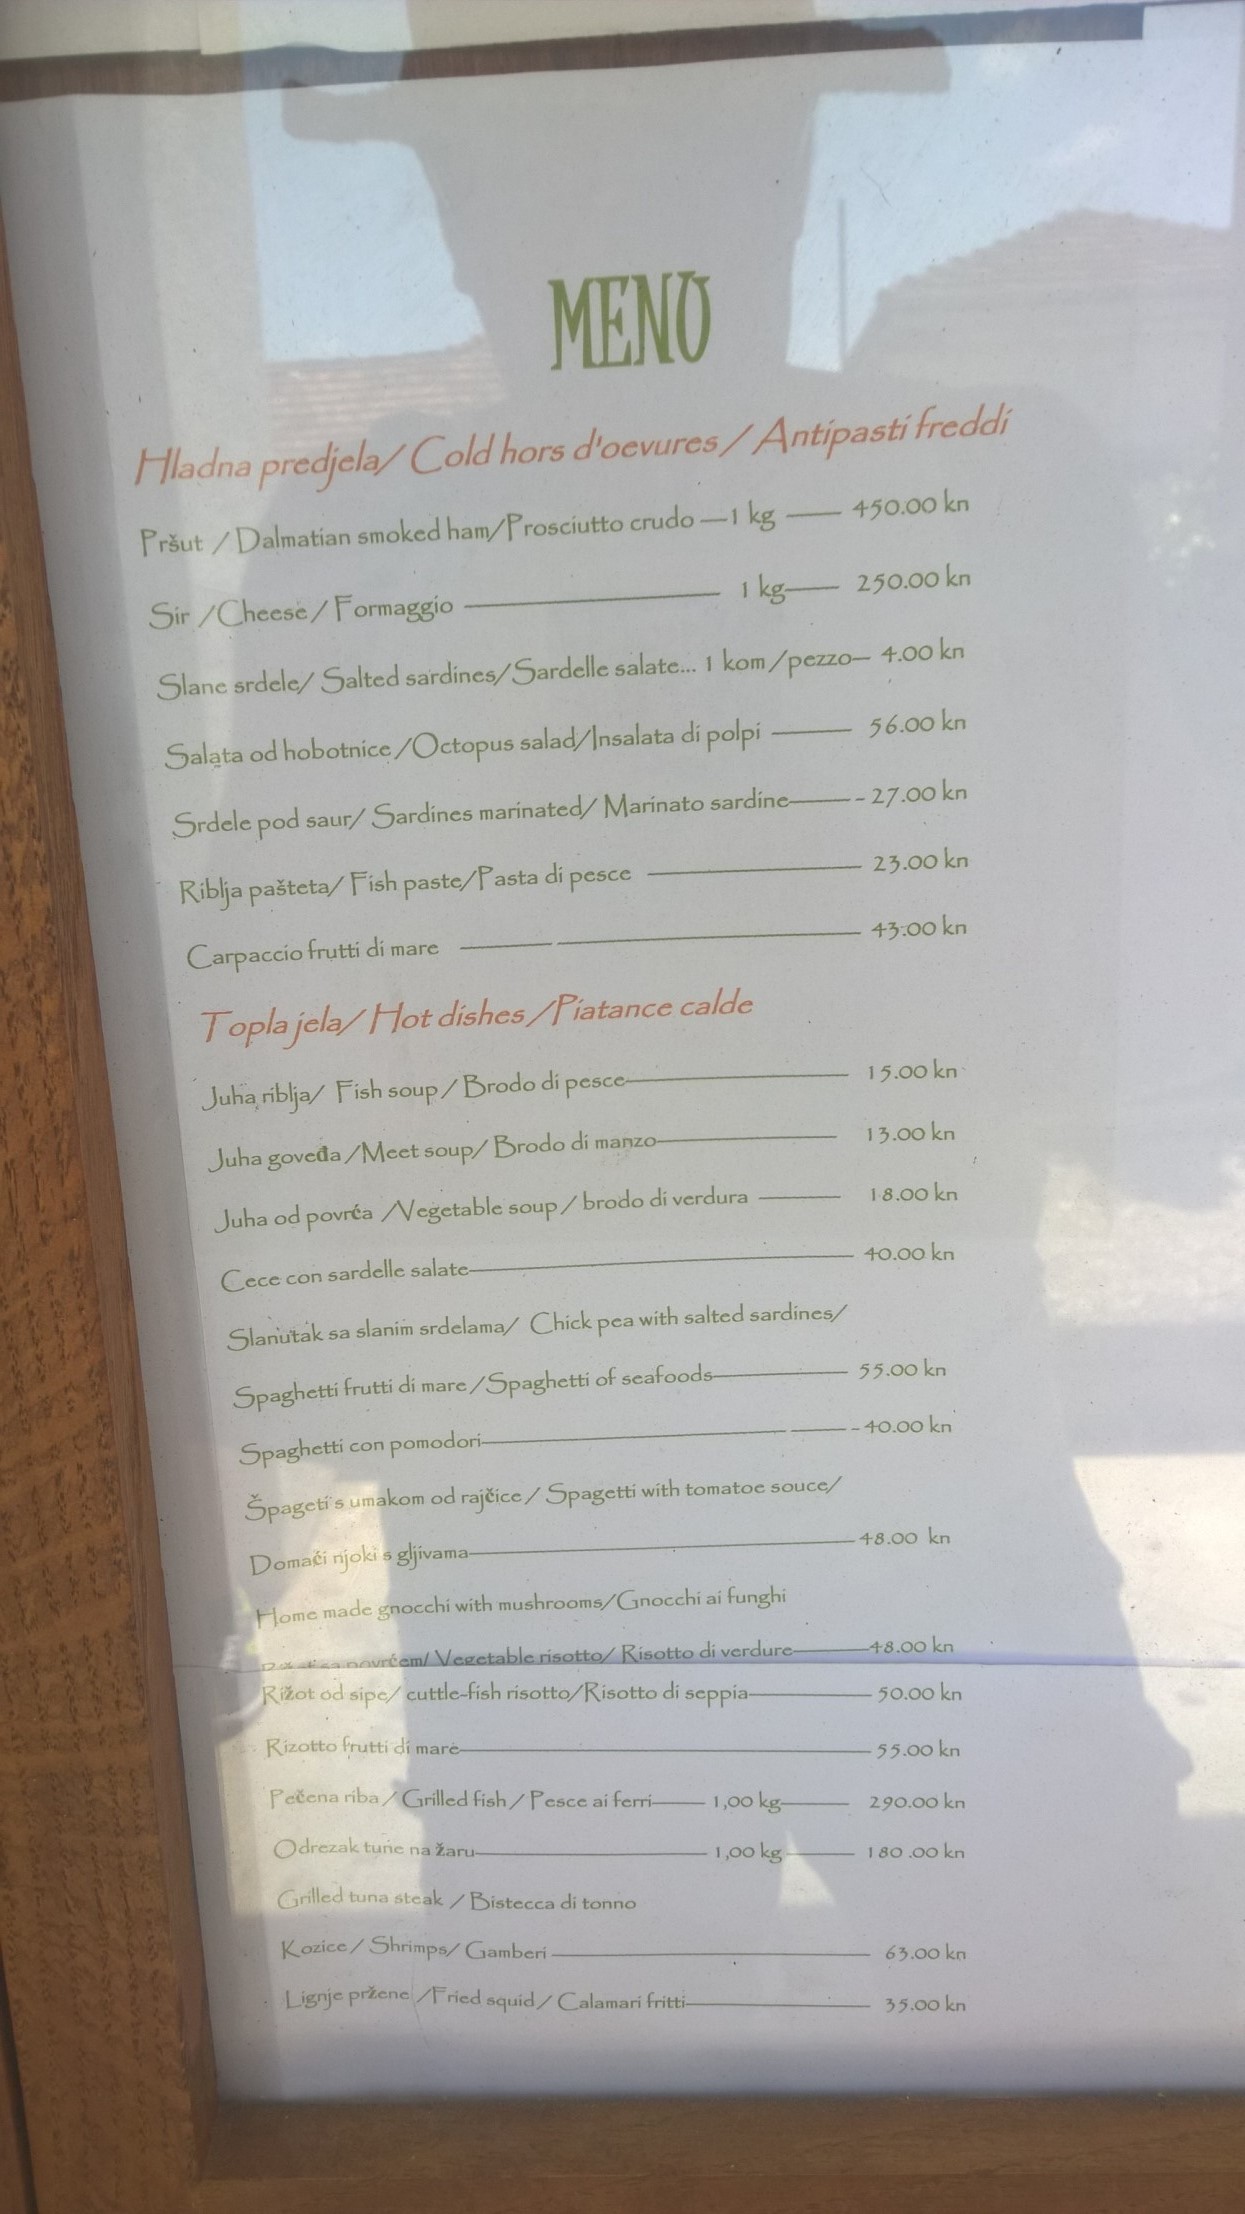 MENU
Hladna predjela/ Cold hors d'oevures / Antipasti freddi
Pršut / Dalmatian smoked ham/Prosciutto crudo —1 kg —— 450.00 kn
Sir /Cheese / Formaggio —————— 1 kg—— 250.00 kn
Slane srdele/ Salted sardines/Sardelle salate... 1 kom /pezzo— 4.00 kn
Salata od hobotnice /Octopus salad/Insalata di polpi ——— 56.00 kn
Srdele pod saur/ Sardines marinated/ Marinato sardine——- - 27.00 kn
Riblja pašteta/ Fish paste/Pasta di pesce —————— 23.00 kn
Carpaccio frutti di mare ——— ————————— 43.00 kn
Topla jela/ Hot dishes /Piatance calde
Juha riblja/ Fish soup / Brodo di pesce—————— 15.00 kn
Juha goveđa /Meet soup/ Brodo di manzo————— 13.00 kn
Juha od povrća /Vegetable soup / brodo di verdura ——— 18.00 kn
Cece con sardelle salate——————————— 40.00 kn
Slanutak sa slanim srdelama/ Chick pea with salted sardines/
Spaghetti frutti di mare /Spaghetti of seafoods———— 55.00 kn
Spaghetti con pomodori————————— ——- - 40.00 kn
Špageti s umakom od rajčice / Spagetti with tomatoe souce/
Domaći njoki s gljivama———————————48.00 kn
Home made gnocchi with mushrooms/Gnocchi ai funghi
povrćem/ Vegetable risotto/ Risotto di verdure———48.00 kn
Rižot od sipe/ cuttle-fish risotto/Risotto di seppia———— 50.00 kn
Rizotto frutti di mare———————————— 55.00 kn
Pečena riba / Grilled fish / Pesce ai ferri—— 1,00 kg—— 290.00 kn
Odrezak tune na žaru——————— 1,00 kg —— 180 .00 kn
Grilled tuna steak / Bistecca di tonno
Kozice / Shrimps/ Gamberi —————————— 63.00 kn
Lignje pržene /Fried squid / Calamari fritti—————— 35.00 kn